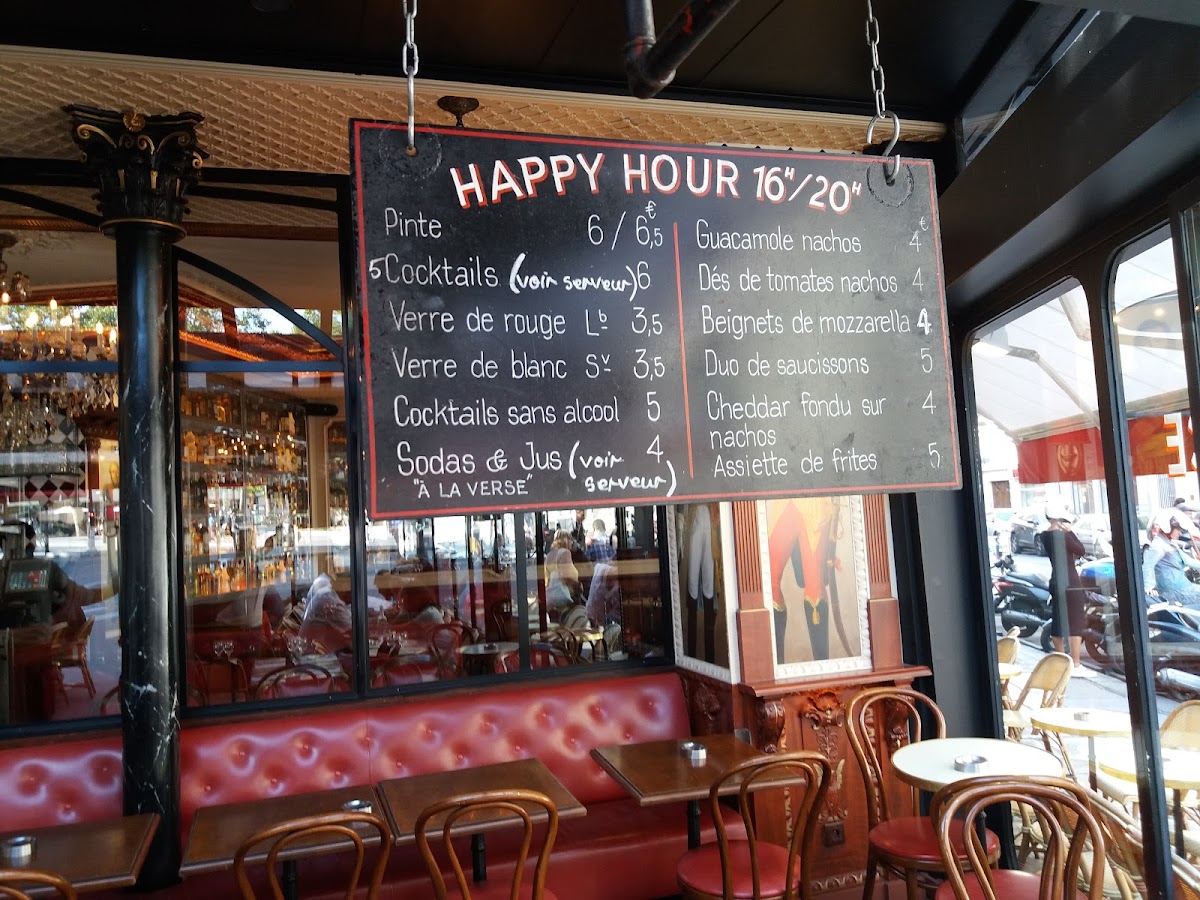 HAPPY HOUR 16ᴴ/20ᴴ
Pinte 6 / 6,5 €
5 Cocktails (voir serveur) 6
Verre de rouge Lᵇ 3,5
Verre de blanc Sᵛ 3,5
Cocktails sans alcool 5
Sodas & Jus (voir serveur) 4
"À LA VERSE"
Guacamole nachos 4 €
Dés de tomates nachos 4
Beignets de mozzarella 4
Duo de saucissons 5
Cheddar fondu sur 4
nachos
Assiette de frites 5